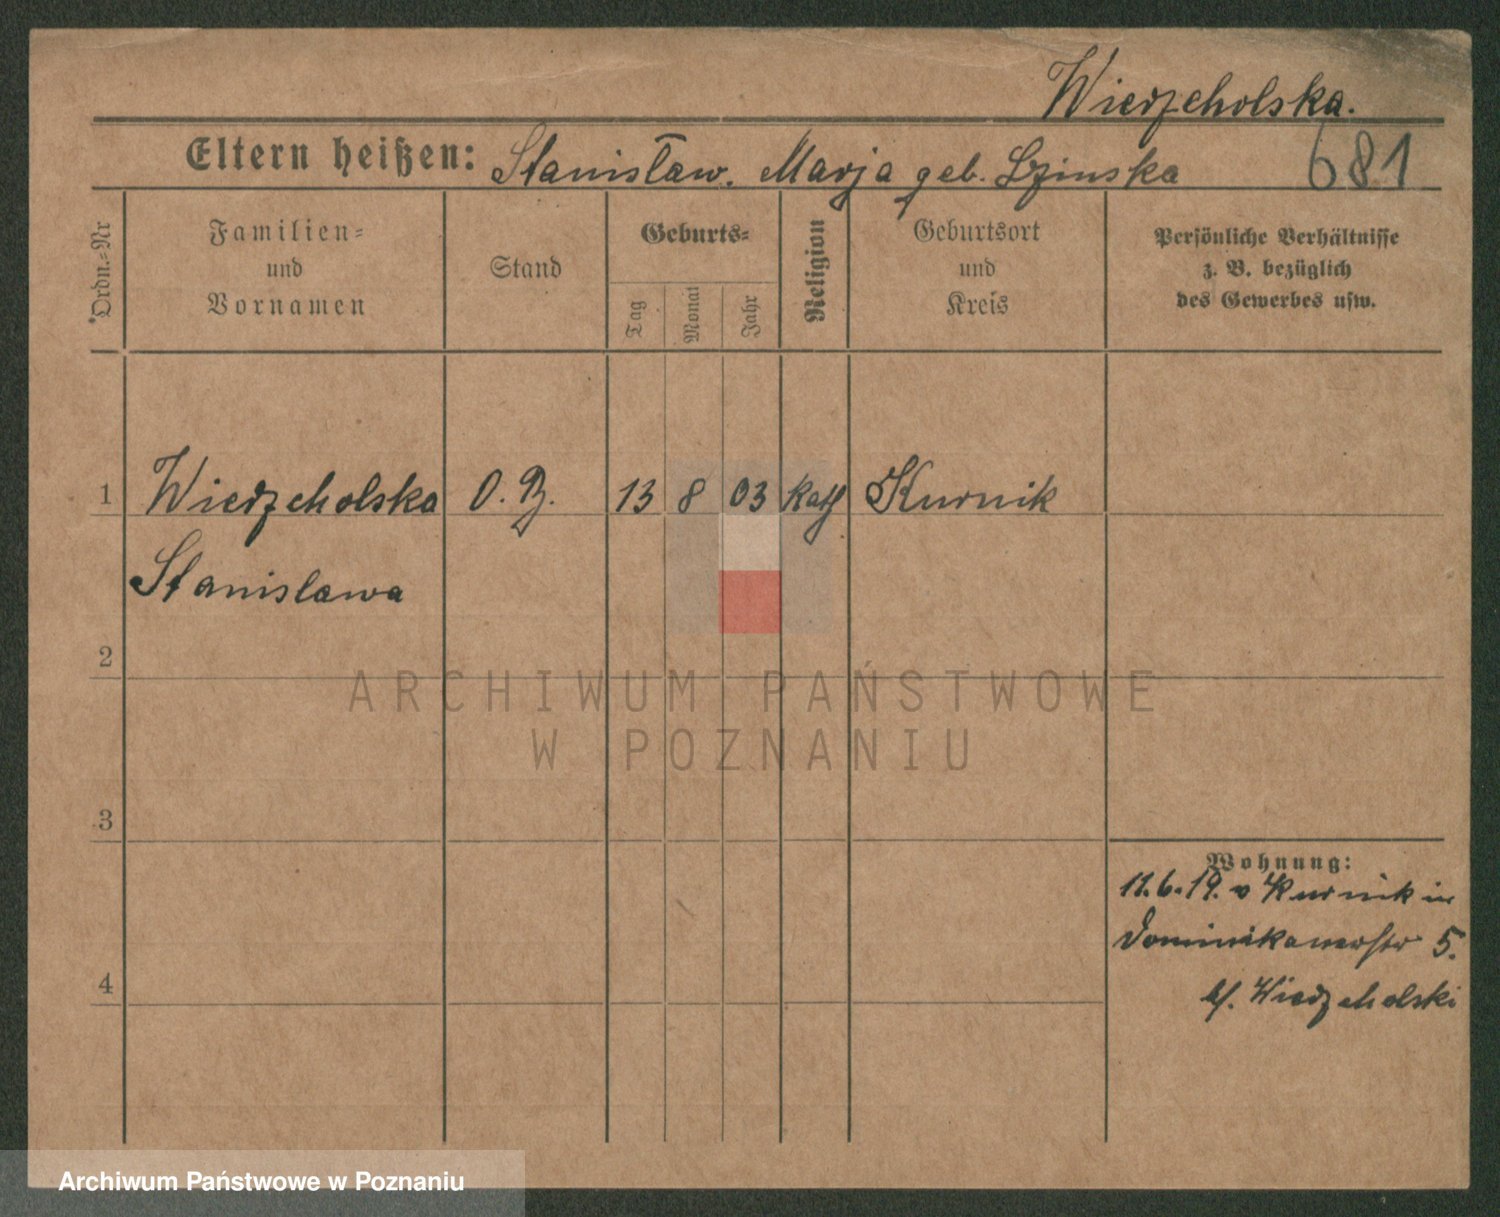 Wierzcholska.
Eltern heißen: Stanisław. Marja geb. Lzinska 681
Ordn.-Nr
Familien-
und
Vornamen
Stand
Geburts-
Tag
Monat
Jahr
Religion
Geburtsort
und
Kreis
Persönliche Verhältnisse
z. B. bezüglich
des Gewerbes usw.
1 Wierzcholska O. B. 13 8 03 kath Kurnik
Stanislawa
2
3
4
Wohnung:
11.6.19. v Kurnik in
Dominikanerstr 5.
b/. Wierzcholski
ARCHIWUM PAŃSTWOWE
W POZNANIU
Archiwum Państwowe w Poznaniu